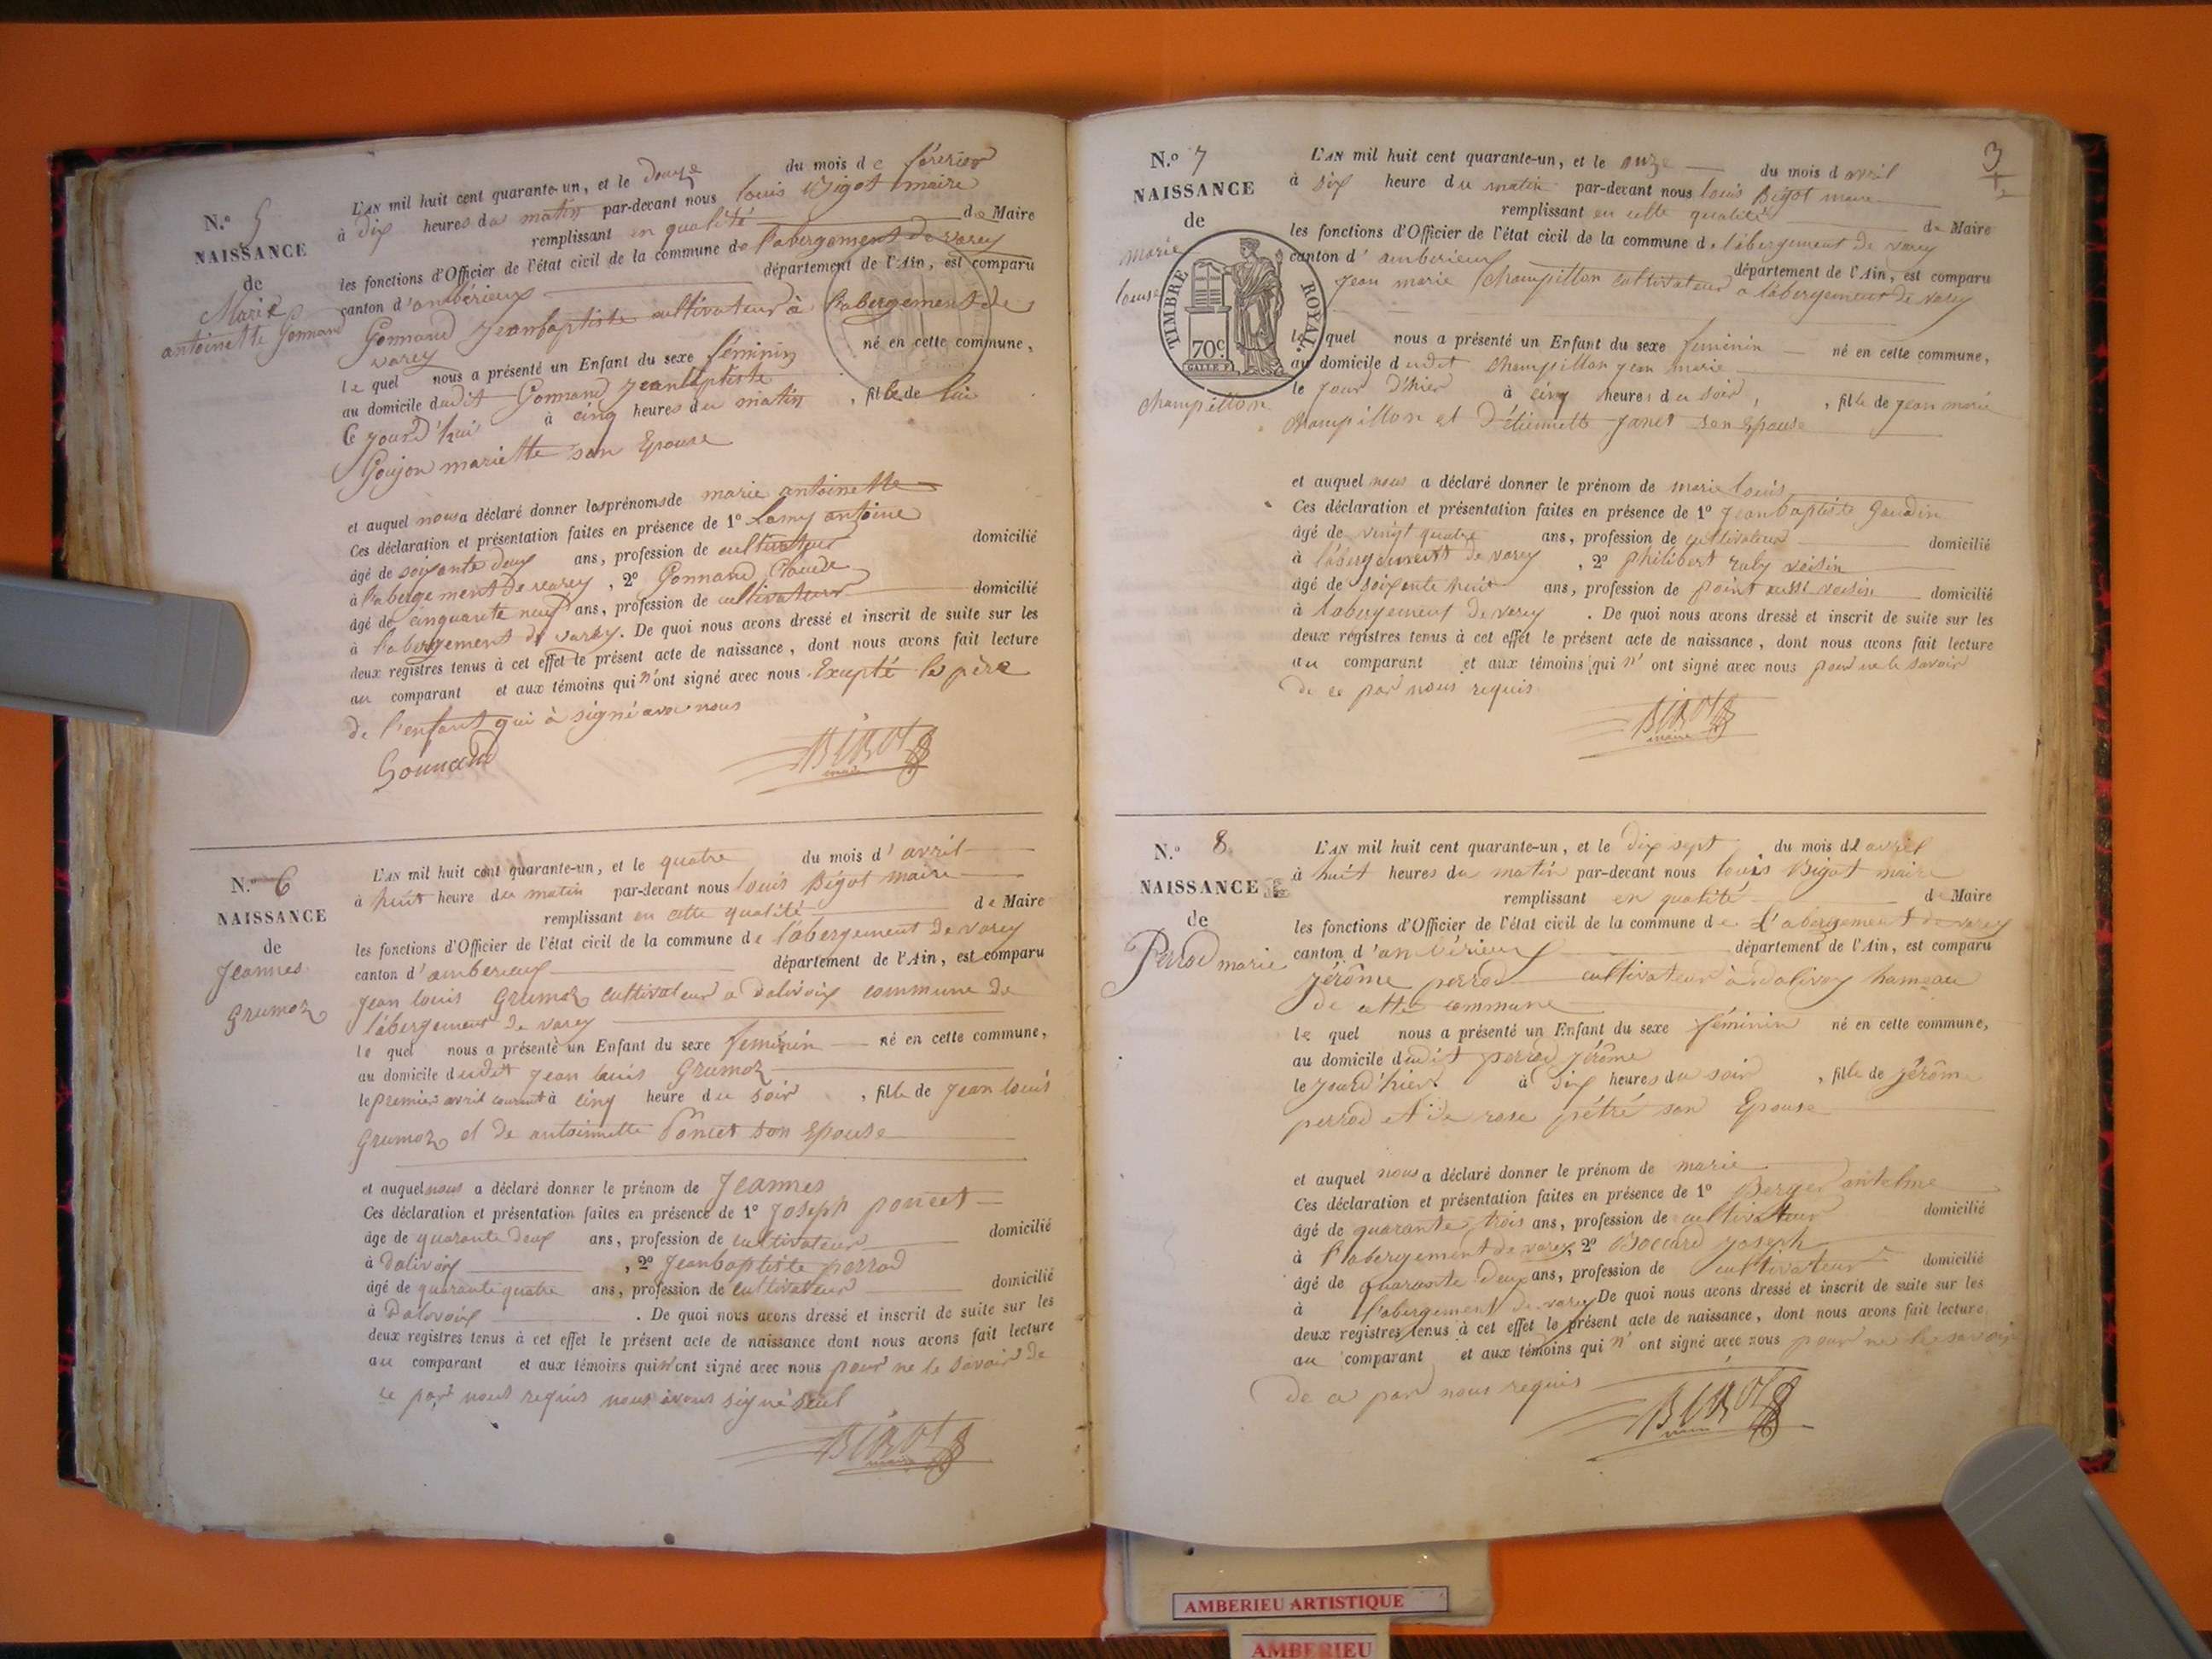 N.º 5
NAISSANCE
de
Marie
antoinette Gonnand
L'AN mil huit cent quarante-un, et le douze du mois de février
à dix heures du matin par-devant nous louis Bigot maire
remplissant en qualité de Maire
les fonctions d'Officier de l'état civil de la commune de l'abergement de varey
canton d'ambérieux département de l'Ain, est comparu
Gonnand Jeanbaptiste cultivateur à l'abergement de
varey
le quel nous a présenté un Enfant du sexe féminin né en cette commune,
au domicile dudit Gonnand Jeanbaptiste
Ce jourd'hui à cinq heures du matin, fille de lui
Goujon mariette son Epouse
et auquel nous a déclaré donner les prénoms de marie antoinette
Ces déclaration et présentation faites en présence de 1º Lamy antoine
âgé de soixante deux ans, profession de cultivateur domicilié
à l'abergement de varey, 2º Gonnand Claude
âgé de cinquante neuf ans, profession de cultivateur domicilié
à l'abergement de varey. De quoi nous avons dressé et inscrit de suite sur les
deux registres tenus à cet effet le présent acte de naissance, dont nous avons fait lecture
au comparant et aux témoins qui n'ont signé avec nous Exepté le père
de l'enfant qui à signé avec nous
Gonnand
BIGOT
maire
N.º 6
NAISSANCE
de
Jeannes
Grumoz
L'AN mil huit cent quarante-un, et le quatre du mois d'avril
à huit heure du matin par-devant nous louis Bigot maire
remplissant en cette qualité de Maire
les fonctions d'Officier de l'état civil de la commune de l'abergement de varey
canton d'amberieux département de l'Ain, est comparu
Jean louis Grumoz cultivateur a dalivoix commune de
l'abergement de varey
le quel nous a présenté un Enfant du sexe feminin né en cette commune,
au domicile dudit jean louis Grumoz
le premier avril courant à cinq heure du soir, fille de jean louis
Grumoz et de antoinette Poncet son Epouse
et auquel nous a déclaré donner le prénom de Jeannes
Ces déclaration et présentation faites en présence de 1º Joseph poncet
âgé de quarante deux ans, profession de cultivateur domicilié
à dalivoix, 2º Jeanbaptiste perrod
âgé de quarante quatre ans, profession de cultivateur domicilié
à Dalivoix. De quoi nous avons dressé et inscrit de suite sur les
deux registres tenus à cet effet le présent acte de naissance dont nous avons fait lecture
au comparant et aux témoins qui n'ont signé avec nous pour ne le savoir de
ce par nous requis nous avons signé seul
BIGOT
maire
3
N.º 7
NAISSANCE
de
marie
louise
champillon
TIMBRE ROYAL.
70c
GALLE F.
L'AN mil huit cent quarante-un, et le onze du mois d avril
à six heure du matin par-devant nous louis Bigot maire
remplissant en cette qualité de Maire
les fonctions d'Officier de l'état civil de la commune de l'abergement de varey
canton d'amberieux département de l'Ain, est comparu
Jean marie Champillon cultivateur a l'abergement de varey
le quel nous a présenté un Enfant du sexe feminin né en cette commune,
au domicile dudit champillon jean marie
le jour d'hier à cinq heures du soir, fille de jean marie
champillon et d'étiennette Janet son Epouse
et auquel nous a déclaré donner le prénom de marie louis
Ces déclaration et présentation faites en présence de 1º Jeanbaptiste Gaudin
âgé de vingt quatre ans, profession de cultivateur domicilié
à l'abergement de varey, 2º philibert raby voisin
âgé de soixante huit ans, profession de point aussi voisin domicilié
à l'abergement de varey. De quoi nous avons dressé et inscrit de suite sur les
deux registres tenus à cet effet le présent acte de naissance, dont nous avons fait lecture
au comparant et aux témoins qui n'ont signé avec nous pour ne le savoir
de ce par nous requis
BIGOT
maire
N.º 8
NAISSANCE
de
Perrod marie
L'AN mil huit cent quarante-un, et le dix sept du mois d'avril
à huit heures du matin par-devant nous louis Bigot maire
remplissant en qualité de Maire
les fonctions d'Officier de l'état civil de la commune de L'abergement de varey
canton d'ambérieux département de l'Ain, est comparu
jérôme perrod cultivateur à dalivoy hameau
de cette commune
le quel nous a présenté un Enfant du sexe féminin né en cette commune,
au domicile dudit perrod jérôme
le jourd'hier à six heures du soir, fille de jérôme
perrod et de rose pétré son Epouse
et auquel nous a déclaré donner le prénom de marie
Ces déclaration et présentation faites en présence de 1º Berger antelme
âgé de quarante trois ans, profession de cultivateur domicilié
à l'abergement de varey, 2º Boccard Joseph
âgé de quarante deux ans, profession de cultivateur domicilié
à l'abergement de varey De quoi nous avons dressé et inscrit de suite sur les
deux registres tenus à cet effet le présent acte de naissance, dont nous avons fait lecture
au comparant et aux témoins qui n'ont signé avec nous pour ne le savoir
de ce par nous requis
BIGOT
maire
AMBERIEU ARTISTIQUE
AMBERIEU